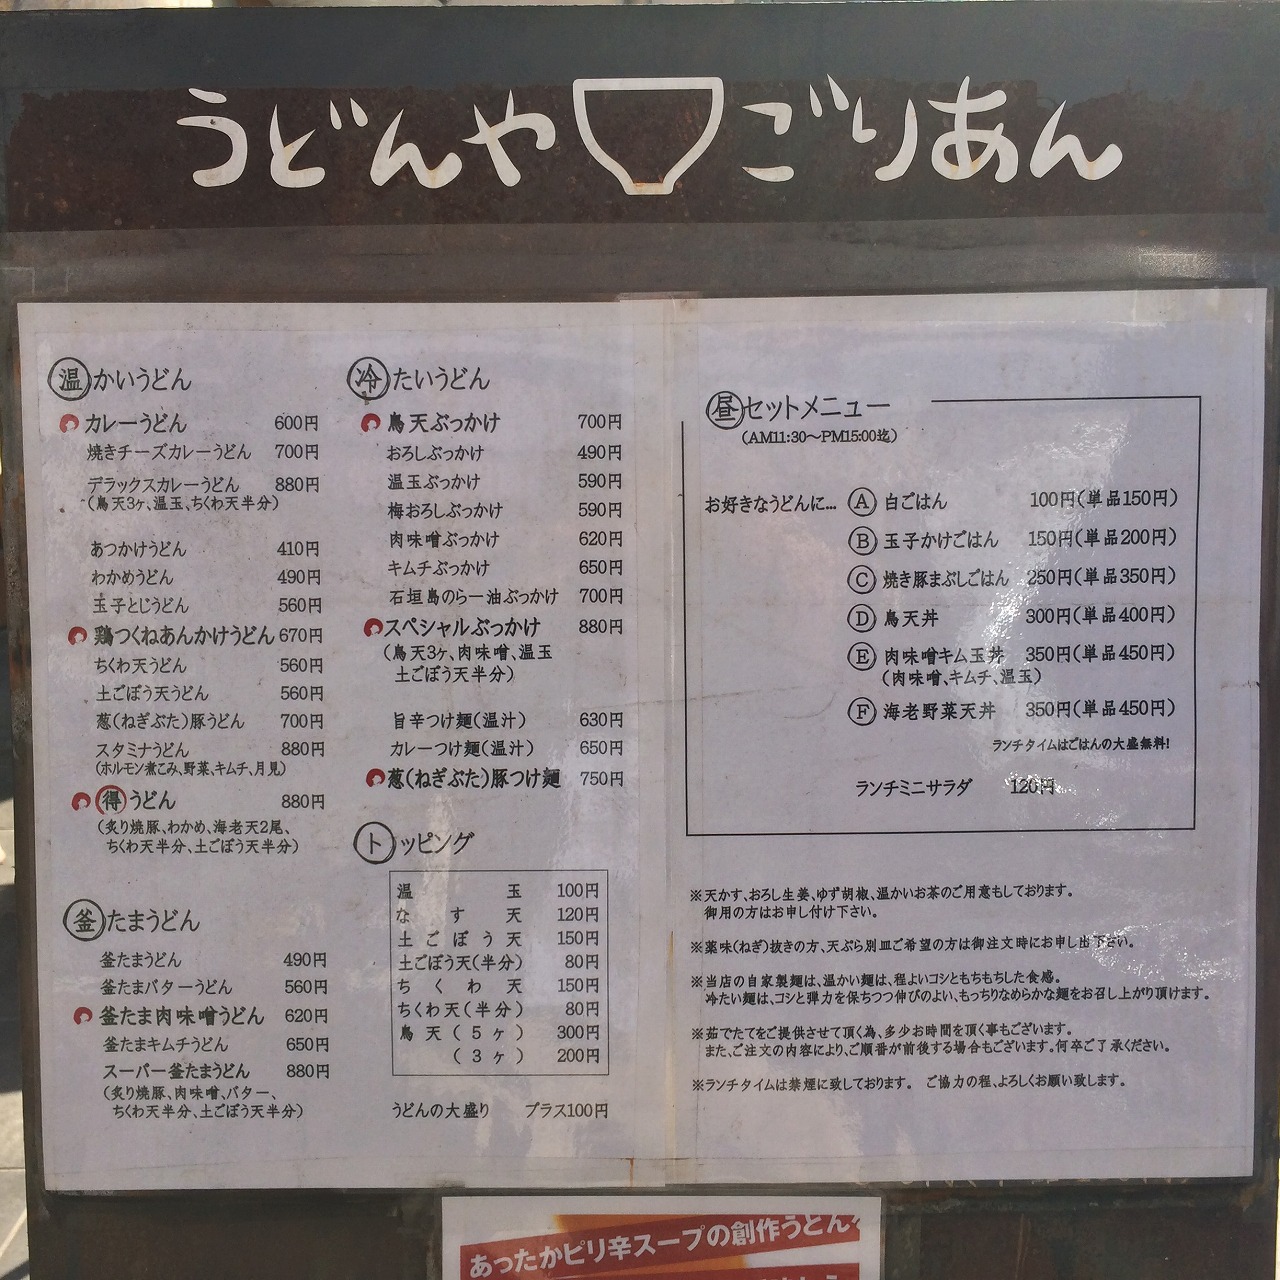 うどんや ごりあん
温かいうどん
カレーうどん 600円
焼きチーズカレーうどん 700円
デラックスカレーうどん 880円
(鳥天3ヶ、温玉、ちくわ天半分)
あつかけうどん 410円
わかめうどん 490円
玉子とじうどん 560円
鶏つくねあんかけうどん 670円
ちくわ天うどん 560円
土ごぼう天うどん 560円
葱(ねぎぶた)豚うどん 700円
スタミナうどん 880円
(ホルモン煮こみ、野菜、キムチ、月見)
得うどん 880円
(炙り焼豚、わかめ、海老天2尾、
ちくわ天半分、土ごぼう天半分)
釜たまうどん
釜たまうどん 490円
釜たまバターうどん 560円
釜たま肉味噌うどん 620円
釜たまキムチうどん 650円
スーパー釜たまうどん 880円
(炙り焼豚、肉味噌、バター、
ちくわ天半分、土ごぼう天半分)
冷たいうどん
鳥天ぶっかけ 700円
おろしぶっかけ 490円
温玉ぶっかけ 590円
梅おろしぶっかけ 590円
肉味噌ぶっかけ 620円
キムチぶっかけ 650円
石垣島のらー油ぶっかけ 700円
スペシャルぶっかけ 880円
(鳥天3ヶ、肉味噌、温玉
土ごぼう天半分)
旨辛つけ麺(温汁) 630円
カレーつけ麺(温汁) 650円
葱(ねぎぶた)豚つけ麺 750円
トッピング
温玉 100円
なす天 120円
土ごぼう天 150円
土ごぼう天(半分) 80円
ちくわ天 150円
ちくわ天(半分) 80円
鳥天(5ヶ) 300円
(3ヶ) 200円
うどんの大盛り プラス100円
昼セットメニュー
(AM11:30〜PM15:00迄)
お好きなうどんに… A 白ごはん 100円(単品150円)
B 玉子かけごはん 150円(単品200円)
C 焼き豚まぶしごはん 250円(単品350円)
D 鳥天丼 300円(単品400円)
E 肉味噌キム玉丼 350円(単品450円)
(肉味噌、キムチ、温玉)
F 海老野菜天丼 350円(単品450円)
ランチタイムはごはんの大盛無料!
ランチミニサラダ 120円
※天かす、おろし生姜、ゆず胡椒、温かいお茶のご用意もしております。
御用の方はお申し付け下さい。
※薬味(ねぎ)抜きの方、天ぷら別皿ご希望の方は御注文時にお申し出下さい。
※当店の自家製麺は、温かい麺は、程よいコシともちもちした食感。
冷たい麺は、コシと弾力を保ちつつ伸びのよい、もっちりなめらかな麺をお召し上がり頂けます。
※茹でたてをご提供させて頂く為、多少お時間を頂く事もございます。
また、ご注文の内容により、ご順番が前後する場合もございます。何卒ご了承ください。
※ランチタイムは禁煙に致しております。 ご協力の程、よろしくお願い致します。
あったかピリ辛スープの創作うどん!